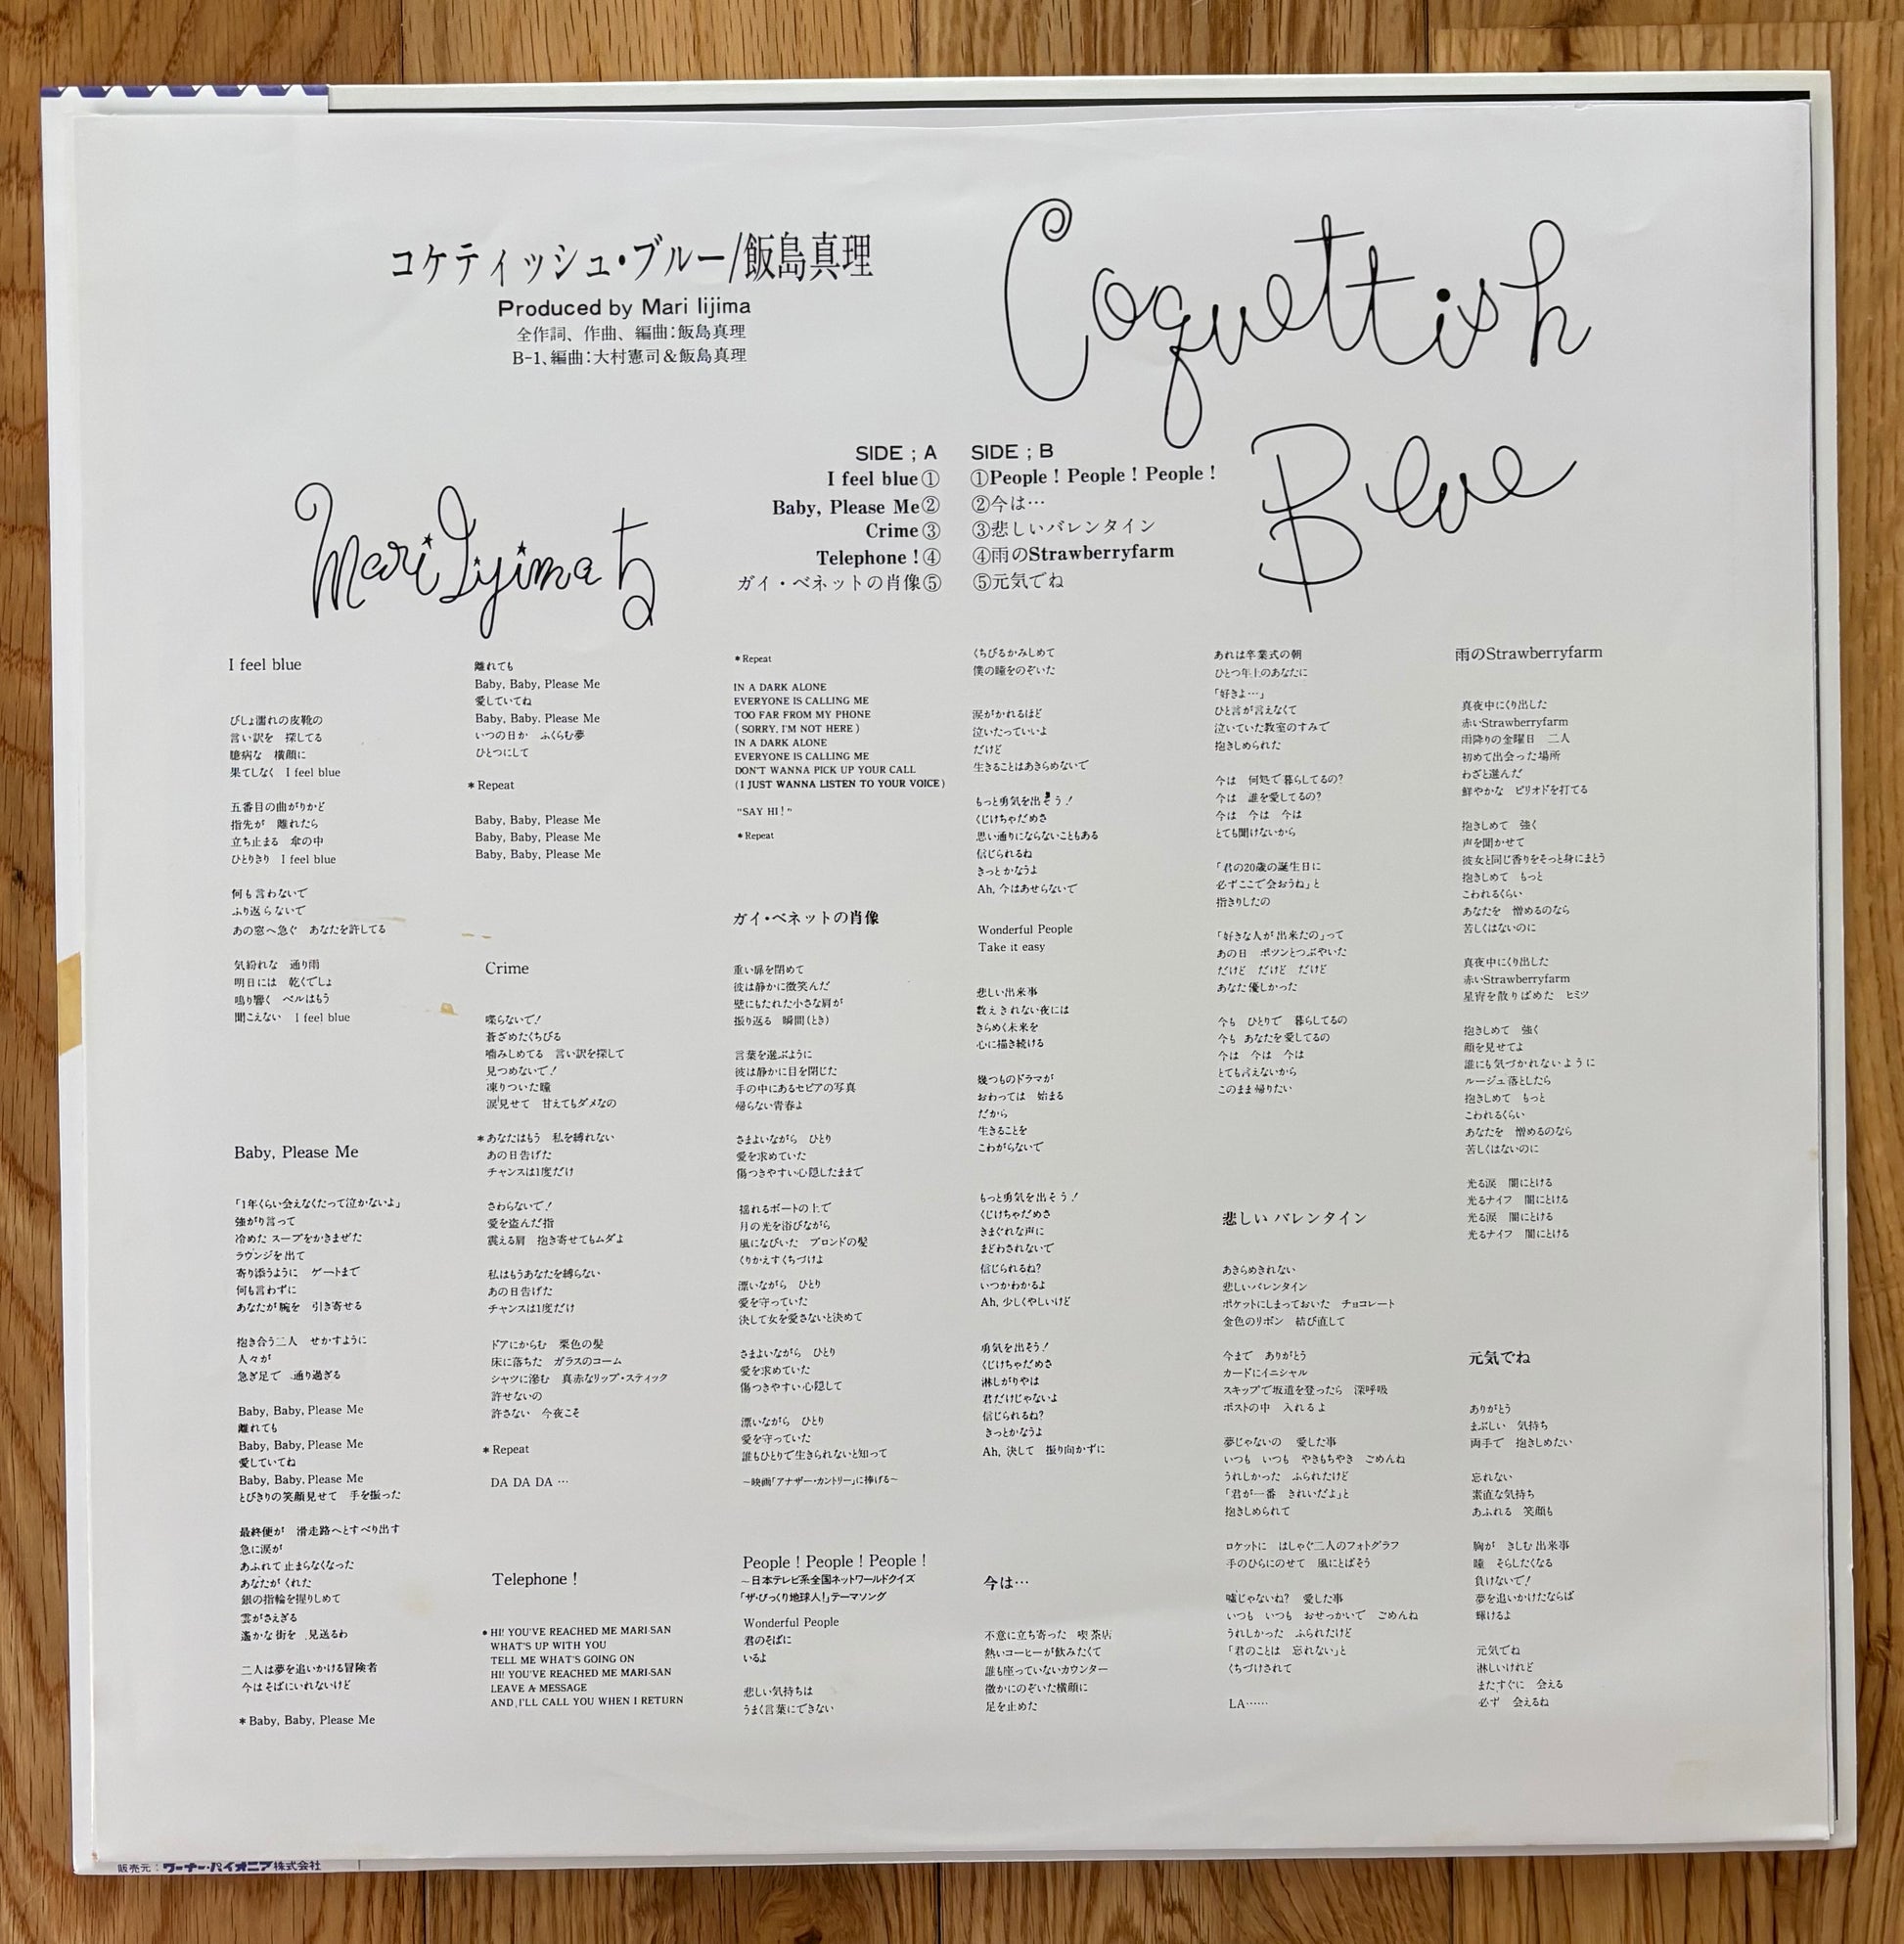 コケティッシュ・ブルー/飯島真理
Produced by Mari Iijima
全作詞、作曲、編曲:飯島真理
B-1、編曲:大村憲司&飯島真理
Coquettish
Blue
Mari Iijima
SIDE ; A
I feel blue①
Baby, Please Me②
Crime③
Telephone !④
ガイ・ベネットの肖像⑤
SIDE ; B
①People ! People ! People !
②今は…
③悲しいバレンタイン
④雨のStrawberryfarm
⑤元気でね
I feel blue
びしょ濡れの皮靴の
言い訳を 探してる
臆病な 横顔に
果てしなく I feel blue
五番目の曲がりかど
指先が 離れたら
立ち止まる 傘の中
ひとりきり I feel blue
何も言わないで
ふり返らないで
あの窓へ急ぐ あなたを許してる
気紛れな 通り雨
明日には 乾くでしょ
鳴り響く ベルはもう
聞こえない I feel blue
Baby, Please Me
「1年くらい会えなくたって泣かないよ」
強がり言って
冷めた スープをかきまぜた
ラウンジを出て
寄り添うように ゲートまで
何も言わずに
あなたが腕を 引き寄せる
抱き合う二人 せかすように
人々が
急ぎ足で 通り過ぎる
Baby, Baby, Please Me
離れても
Baby, Baby, Please Me
愛していてね
Baby, Baby, Please Me
とびきりの笑顔見せて 手を振った
最終便が 滑走路へとすべり出す
急に涙が
あふれて止まらなくなった
あなたがくれた
銀の指輪を握りしめて
雲がさえぎる
遙かな街を 見送るわ
二人は夢を追いかける冒険者
今はそばにいれないけど
*Baby, Baby, Please Me
離れても
Baby, Baby, Please Me
愛していてね
Baby, Baby, Please Me
いつの日か ふくらむ夢
ひとつにして
*Repeat
Baby, Baby, Please Me
Baby, Baby, Please Me
Baby, Baby, Please Me
Crime
喋らないで!
蒼ざめたくちびる
噛みしめてる 言い訳を探して
見つめないで!
凍りついた瞳
涙見せて 甘えてもダメなの
*あなたはもう 私を縛れない
あの日告げた
チャンスは1度だけ
さわらないで!
愛を盗んだ指
震える肩 抱き寄せてもムダよ
私はもうあなたを縛らない
あの日告げた
チャンスは1度だけ
ドアにからむ 栗色の髪
床に落ちた ガラスのコーム
シャツに滲む 真赤なリップ・スティック
許せないの
許さない 今夜こそ
*Repeat
DA DA DA …
Telephone !
*HI! YOU'VE REACHED ME MARI-SAN
WHAT'S UP WITH YOU
TELL ME WHAT'S GOING ON
HI! YOU'VE REACHED ME MARI-SAN
LEAVE A MESSAGE
AND, I'LL CALL YOU WHEN I RETURN
*Repeat
IN A DARK ALONE
EVERYONE IS CALLING ME
TOO FAR FROM MY PHONE
( SORRY, I'M NOT HERE )
IN A DARK ALONE
EVERYONE IS CALLING ME
DON'T WANNA PICK UP YOUR CALL
(I JUST WANNA LISTEN TO YOUR VOICE)
“SAY HI!”
*Repeat
ガイ・ベネットの肖像
重い扉を閉めて
彼は静かに微笑んだ
壁にもたれた小さな肩が
振り返る 瞬間(とき)
言葉を選ぶように
彼は静かに目を閉じた
手の中にあるセピアの写真
帰らない青春よ
さまよいながら ひとり
愛を求めていた
傷つきやすい心隠したままで
揺れるボートの上で
月の光を浴びながら
風になびいた ブロンドの髪
くりかえすくちづけよ
漂いながら ひとり
愛を守っていた
決して女を愛さないと決めて
さまよいながら ひとり
愛を求めていた
傷つきやすい心隠して
漂いながら ひとり
愛を守っていた
誰もひとりで生きられないと知って
~映画「アナザー・カントリー」に捧げる~
People ! People ! People !
~日本テレビ系全国ネットワールドクイズ
「ザ・びっくり地球人!」テーマソング
Wonderful People
君のそばに
いるよ
悲しい気持ちは
うまく言葉にできない
くちびるかみしめて
僕の瞳をのぞいた
涙がかれるほど
泣いたっていいよ
だけど
生きることはあきらめないで
もっと勇気を出そう!
くじけちゃだめさ
思い通りにならないこともある
信じられるね
きっとかなうよ
Ah, 今はあせらないで
Wonderful People
Take it easy
悲しい出来事
数えきれない夜には
きらめく未来を
心に描き続ける
幾つものドラマが
おわっては 始まる
だから
生きることを
こわがらないで
もっと勇気を出そう!
くじけちゃだめさ
きまぐれな声に
まどわされないで
信じられるね?
いつかわかるよ
Ah, 少しくやしいけど
勇気を出そう!
くじけちゃだめさ
淋しがりやは
君だけじゃないよ
信じられるね?
きっとかなうよ
Ah, 決して 振り向かずに
今は…
不意に立ち寄った 喫茶店
熱いコーヒーが飲みたくて
誰も座っていないカウンター
微かにのぞいた横顔に
足を止めた
あれは卒業式の朝
ひとつ年上のあなたに
「好きよ…」
ひと言が言えなくて
泣いていた教室のすみで
抱きしめられた
今は 何処で暮らしてるの?
今は 誰を愛してるの?
今は 今は 今は
とても聞けないから
「君の20歳の誕生日に
必ずここで会おうね」と
指きりしたの
「好きな人が出来たの」って
あの日 ポツンとつぶやいた
だけど だけど だけど
あなた優しかった
今も ひとりで 暮らしてるの
今も あなたを愛してるの
今は 今は 今は
とても言えないから
このまま帰りたい
悲しい バレンタイン
あきらめきれない
悲しいバレンタイン
ポケットにしまっておいた チョコレート
金色のリボン 結び直して
今まで ありがとう
カードにイニシャル
スキップで坂道を登ったら 深呼吸
ポストの中 入れるよ
夢じゃないの 愛した事
いつも いつも やきもちやき ごめんね
うれしかった ふられたけど
「君が一番 きれいだよ」と
抱きしめられて
ロケットに はしゃぐ二人のフォトグラフ
手のひらにのせて 風にとばそう
嘘じゃないね? 愛した事
いつも いつも おせっかいで ごめんね
うれしかった ふられたけど
「君のことは 忘れない」と
くちづけされて
LA……
雨のStrawberryfarm
真夜中にくり出した
赤いStrawberryfarm
雨降りの金曜日 二人
初めて出会った場所
わざと選んだ
鮮やかな ピリオドを打てる
抱きしめて 強く
声を聞かせて
彼女と同じ香りをそっと身にまとう
抱きしめて もっと
こわれるくらい
あなたを 憎めるのなら
苦しくはないのに
真夜中にくり出した
赤いStrawberryfarm
星宵を散りばめた ヒミツ
抱きしめて 強く
顔を見せてよ
誰にも気づかれないように
ルージュ落としたら
抱きしめて もっと
こわれるくらい
あなたを 憎めるのなら
苦しくはないのに
光る涙 闇にとける
光るナイフ 闇にとける
光る涙 闇にとける
光るナイフ 闇にとける
元気でね
ありがとう
まぶしい 気持ち
両手で 抱きしめたい
忘れない
素直な気持ち
あふれる 笑顔も
胸が きしむ出来事
瞳 そらしたくなる
負けないで!
夢を追いかけたならば
輝けるよ
元気でね
淋しいけれど
またすぐに 会える
必ず 会えるね
販売元:ワーナー・パイオニア株式会社